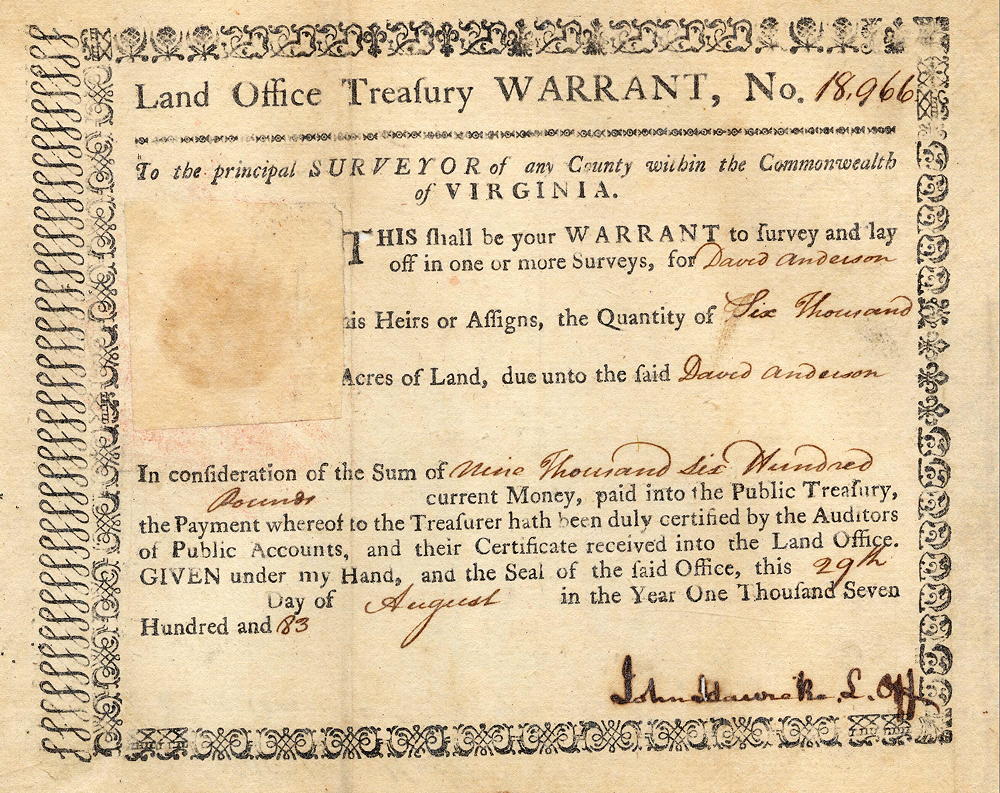 Land Office Treaſury WARRANT, No. 18,966
To the principal SURVEYOR of any County within the Commonwealth
of VIRGINIA.
THIS ſhall be your WARRANT to ſurvey and lay
off in one or more Surveys, for David Anderson
his Heirs or Aſſigns, the Quantity of Six Thousand
Acres of Land, due unto the ſaid David Anderson
In conſideration of the Sum of Nine Thousand Six Hundred
Pounds current Money, paid into the Public Treaſury,
the Payment whereof to the Treaſurer hath been duly certified by the Auditors
of Public Accounts, and their Certificate received into the Land Office.
GIVEN under my Hand, and the Seal of the ſaid Office, this 29th
Day of August in the Year One Thouſand Seven
Hundred and 83
John L. Off